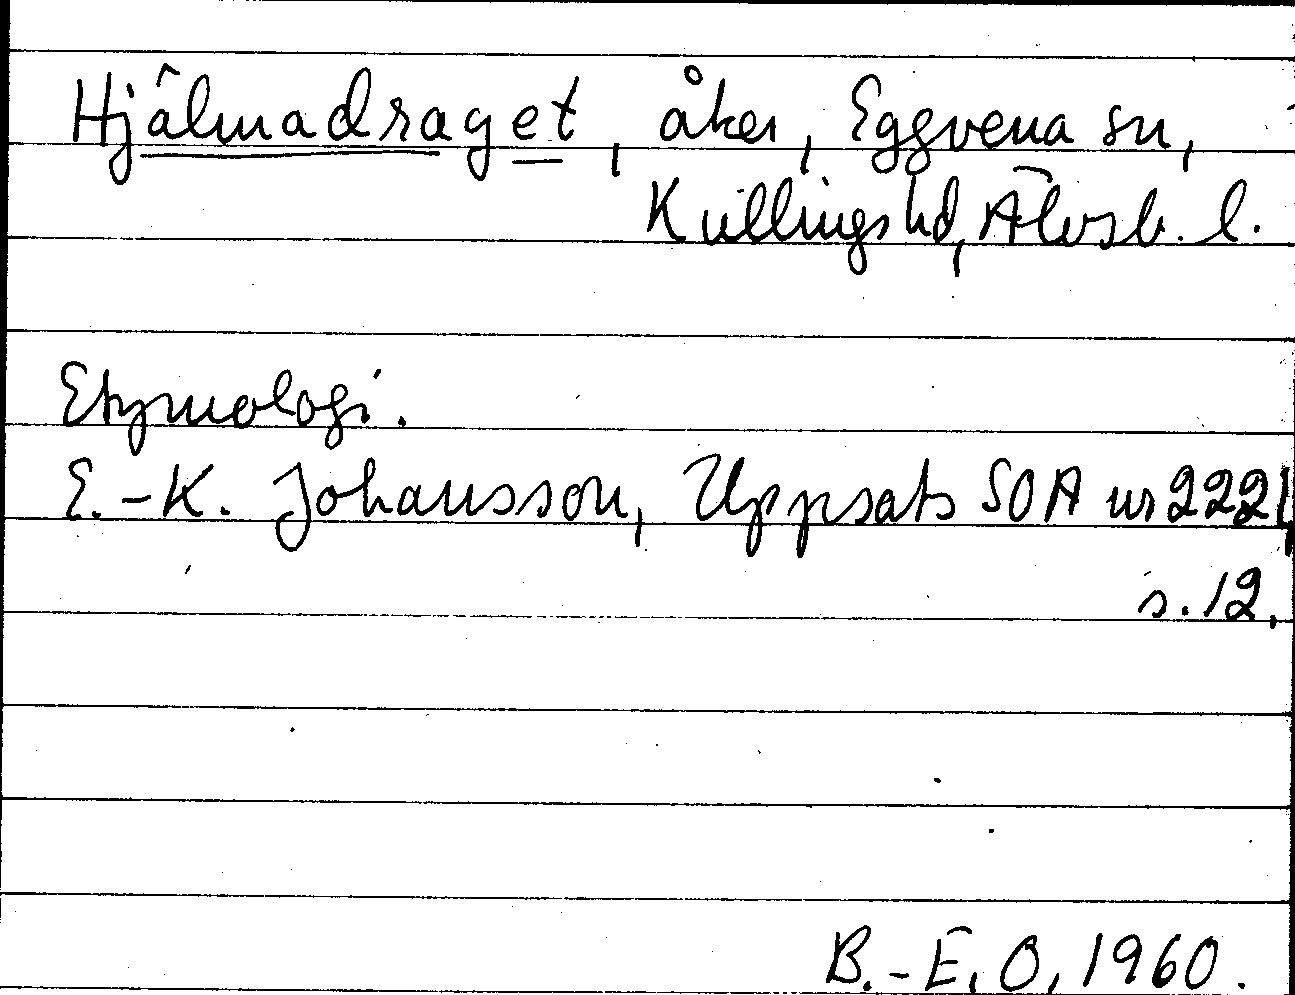 Hjälmadraget, åker, Eggvena sn,
Kullings hd, Älvsb. l.
Etymologi.
E.-K. Johansson, Uppsats SOA nr 2221,
s. 12.
B.-E. O, 1960.